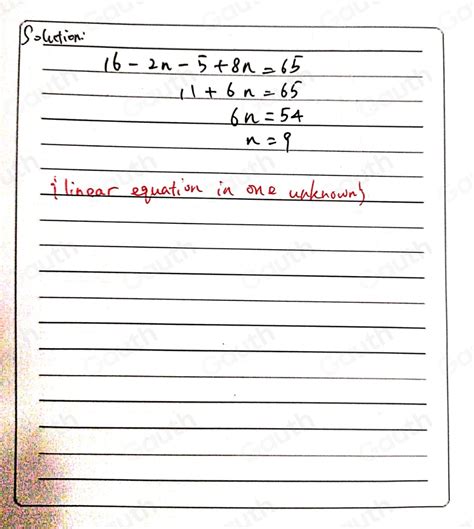 Solution:
16 - 2n - 5 + 8n = 65
11 + 6n = 65
6n = 54
n = 9
{linear equation in one unknown}